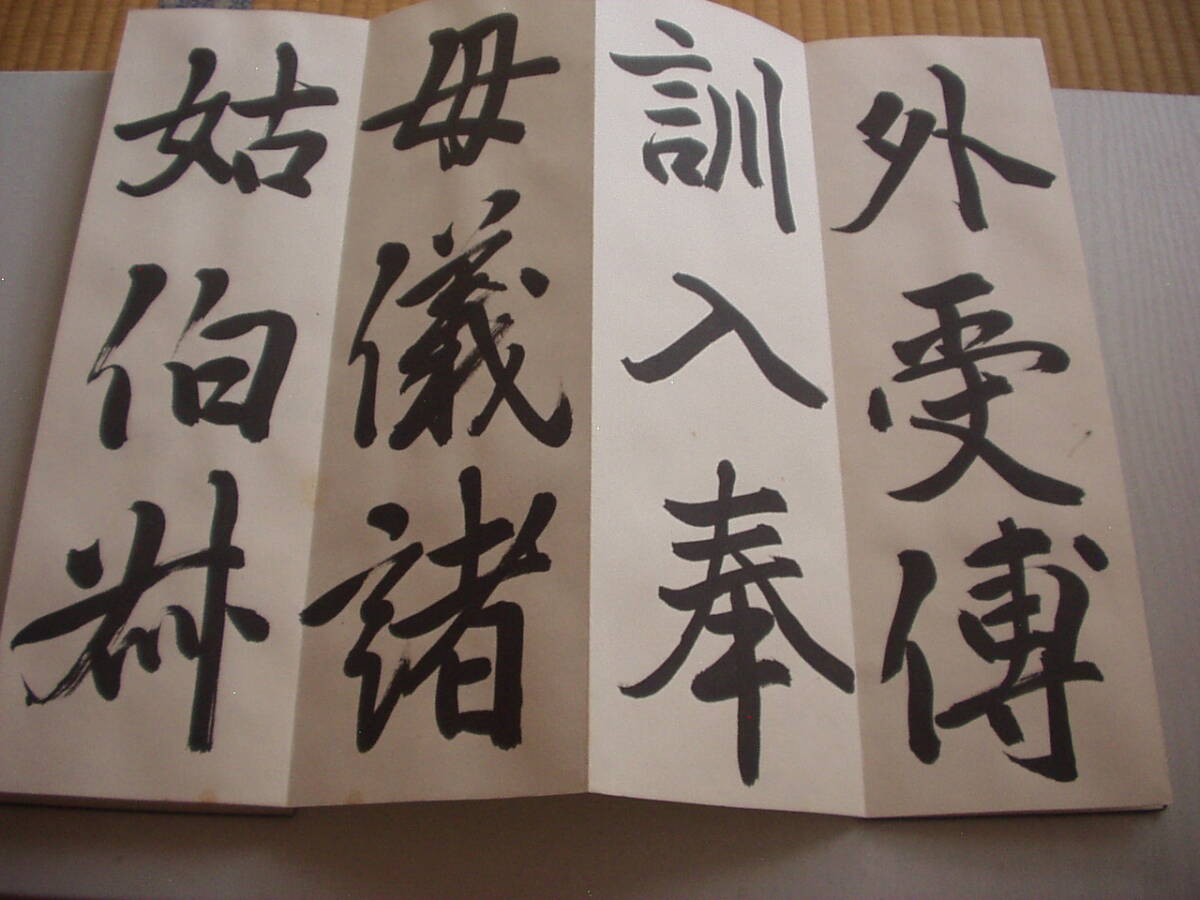 外受傅
訓入奉
母儀諸
姑伯叔